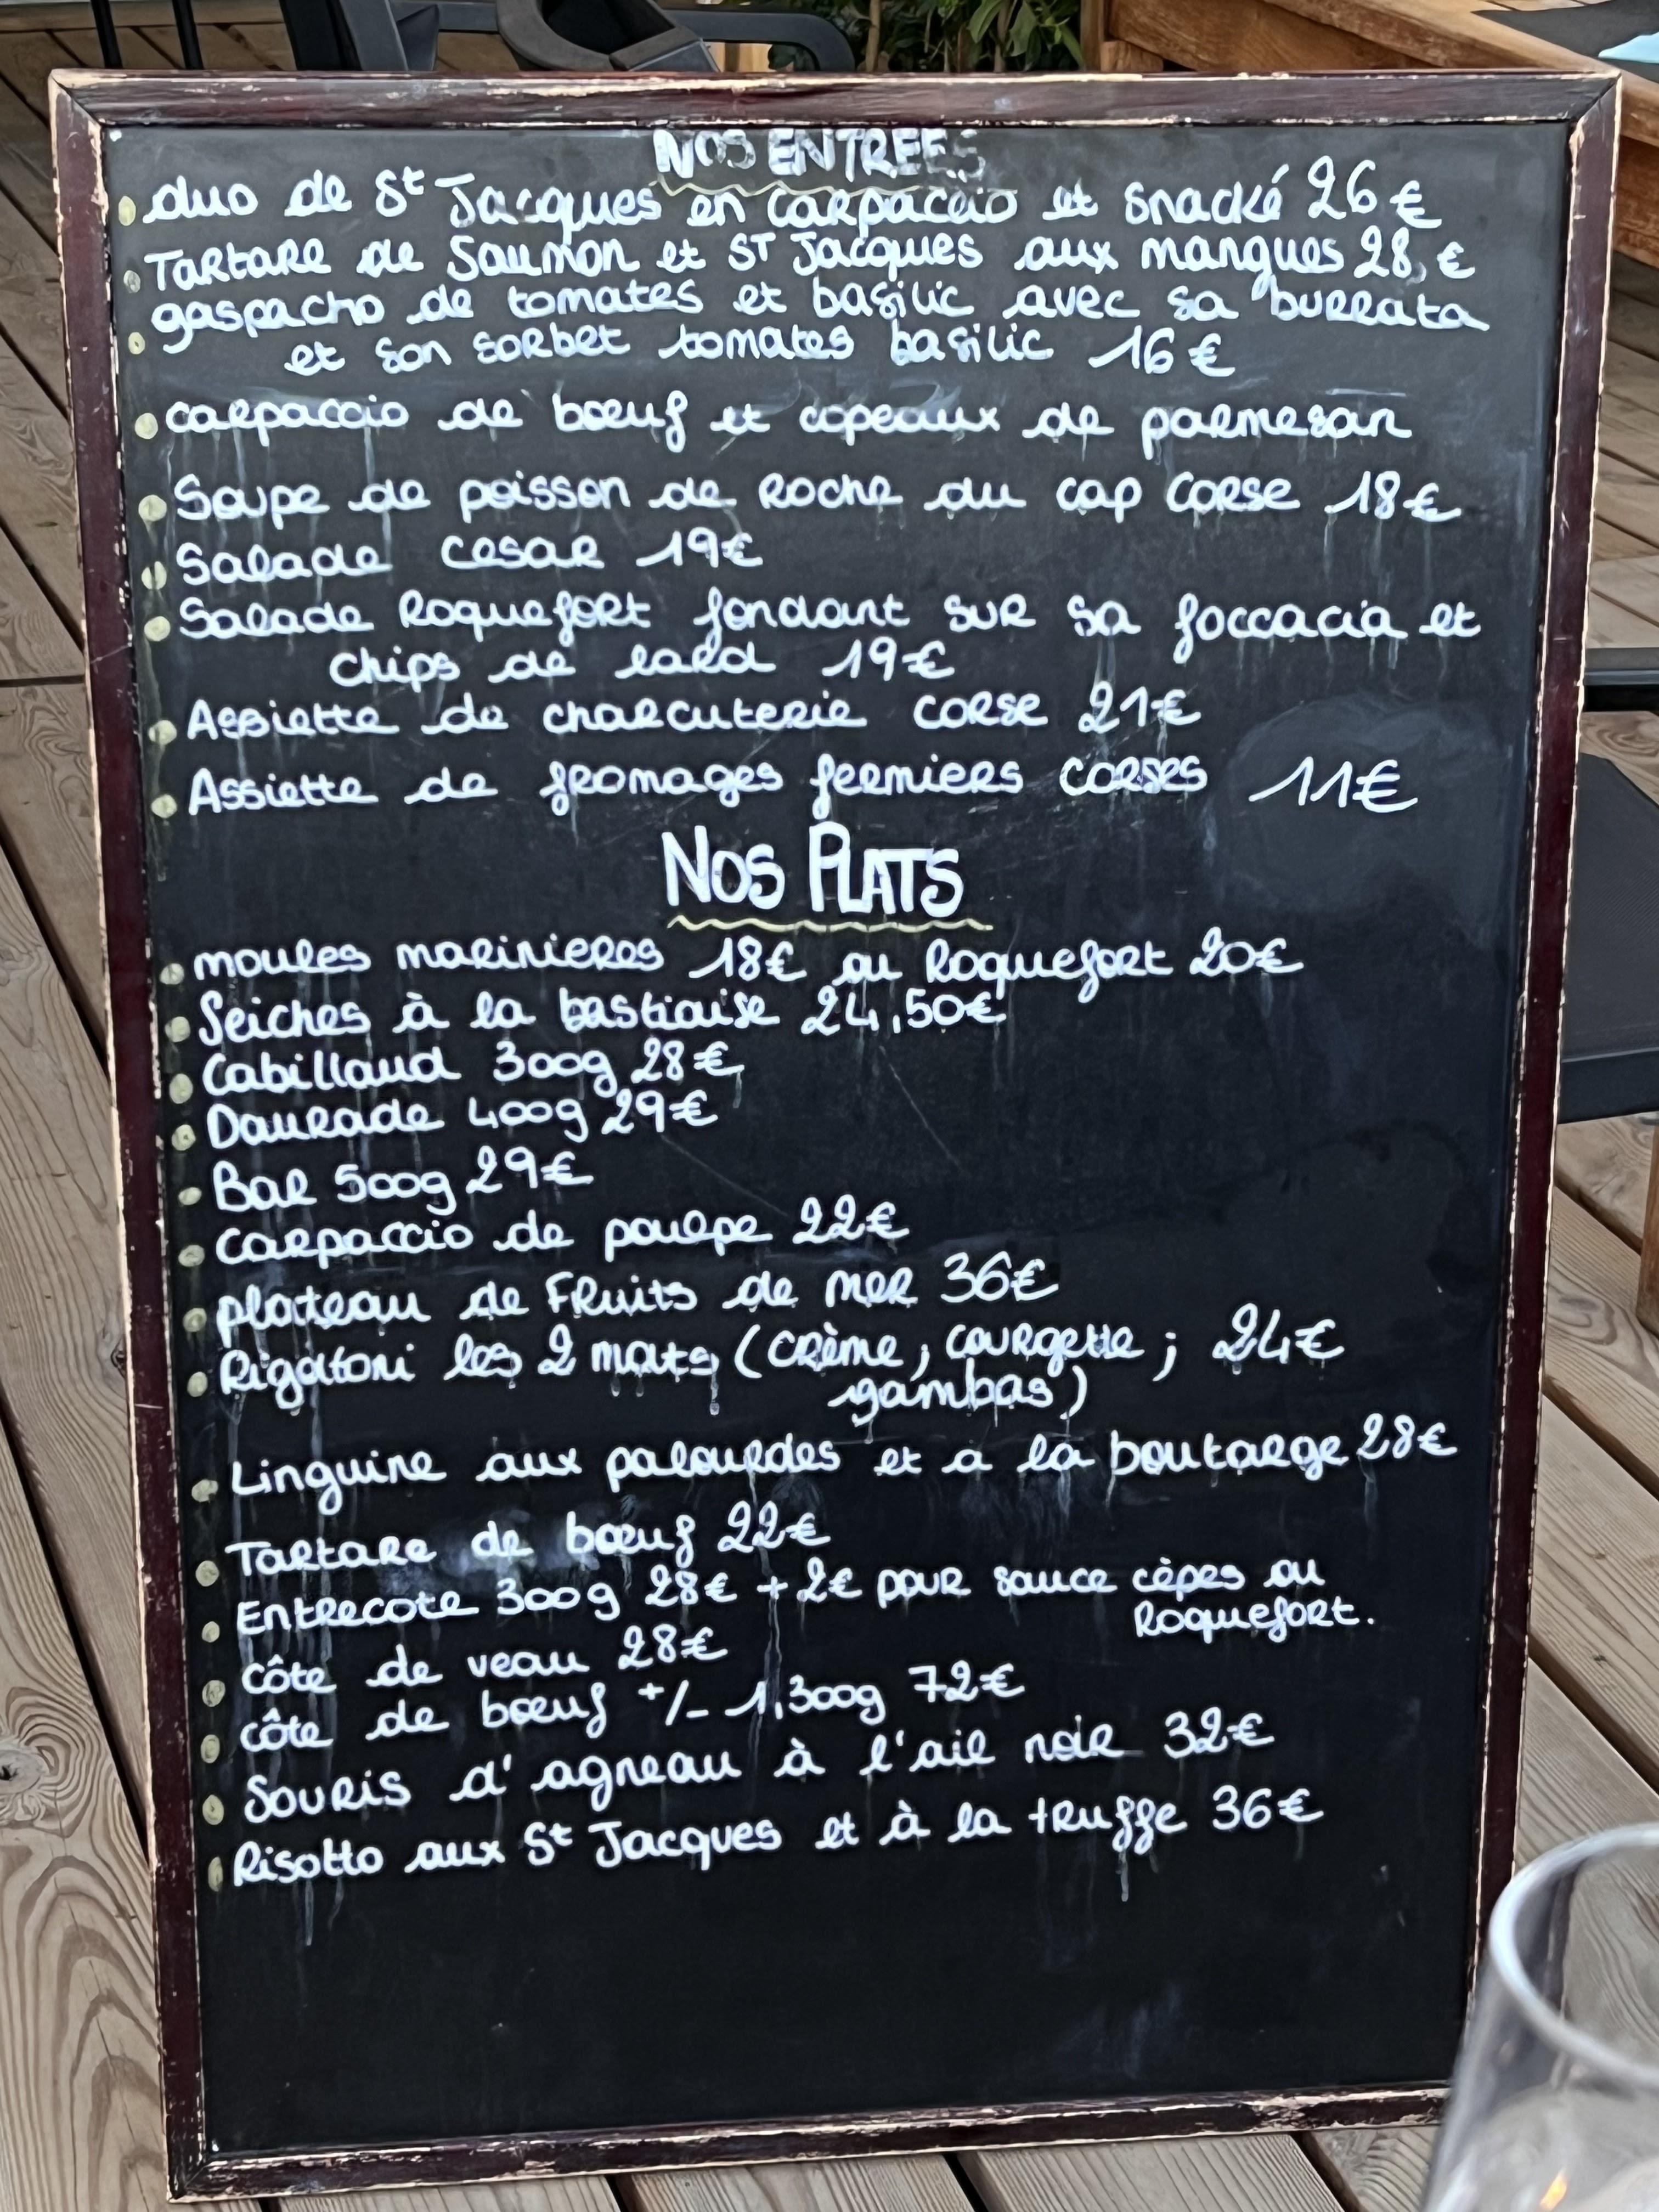 NOS ENTREES
duo de St Jacques en carpaccio et snacké 26 €
Tartare de Saumon et ST Jacques aux mangues 28, €
gaspacho de tomates et basilic avec sa burrata
et son sorbet tomates basilic 16 €
carpaccio de bœuf et copeaux de parmesan
Soupe de poisson de Roche du cap corse 18 €
Salade cesar 19€
Salade Roquefort fondant sur sa foccacia et
chips de lard 19€
Assiette de charcuterie corse 21€
Assiette de fromages fermiers corses 11€
NOS PLATS
moules marinieres 18€ ou Roquefort 20€
Seiches à la bastiaise 24,50€
Cabillaud 300g 28€
Daurade 400g 29€
Bar 500g 29€
carpaccio de poulpe 22€
plateau de Fruits de mer 36€
Rigatoni les 2 mats (crème; courgette; 24€
gambas)
Linguine aux palourdes et a la boutarge 28€
Tartare de bœuf 22€
Entrecote 300g 28€ + 2€ pour sauce cèpes ou
Roquefort.
côte de veau 28€
côte de bœuf +/- 1,300g 72€
Souris d'agneau à l'ail noir 32€
Risotto aux St Jacques et à la truffe 36€